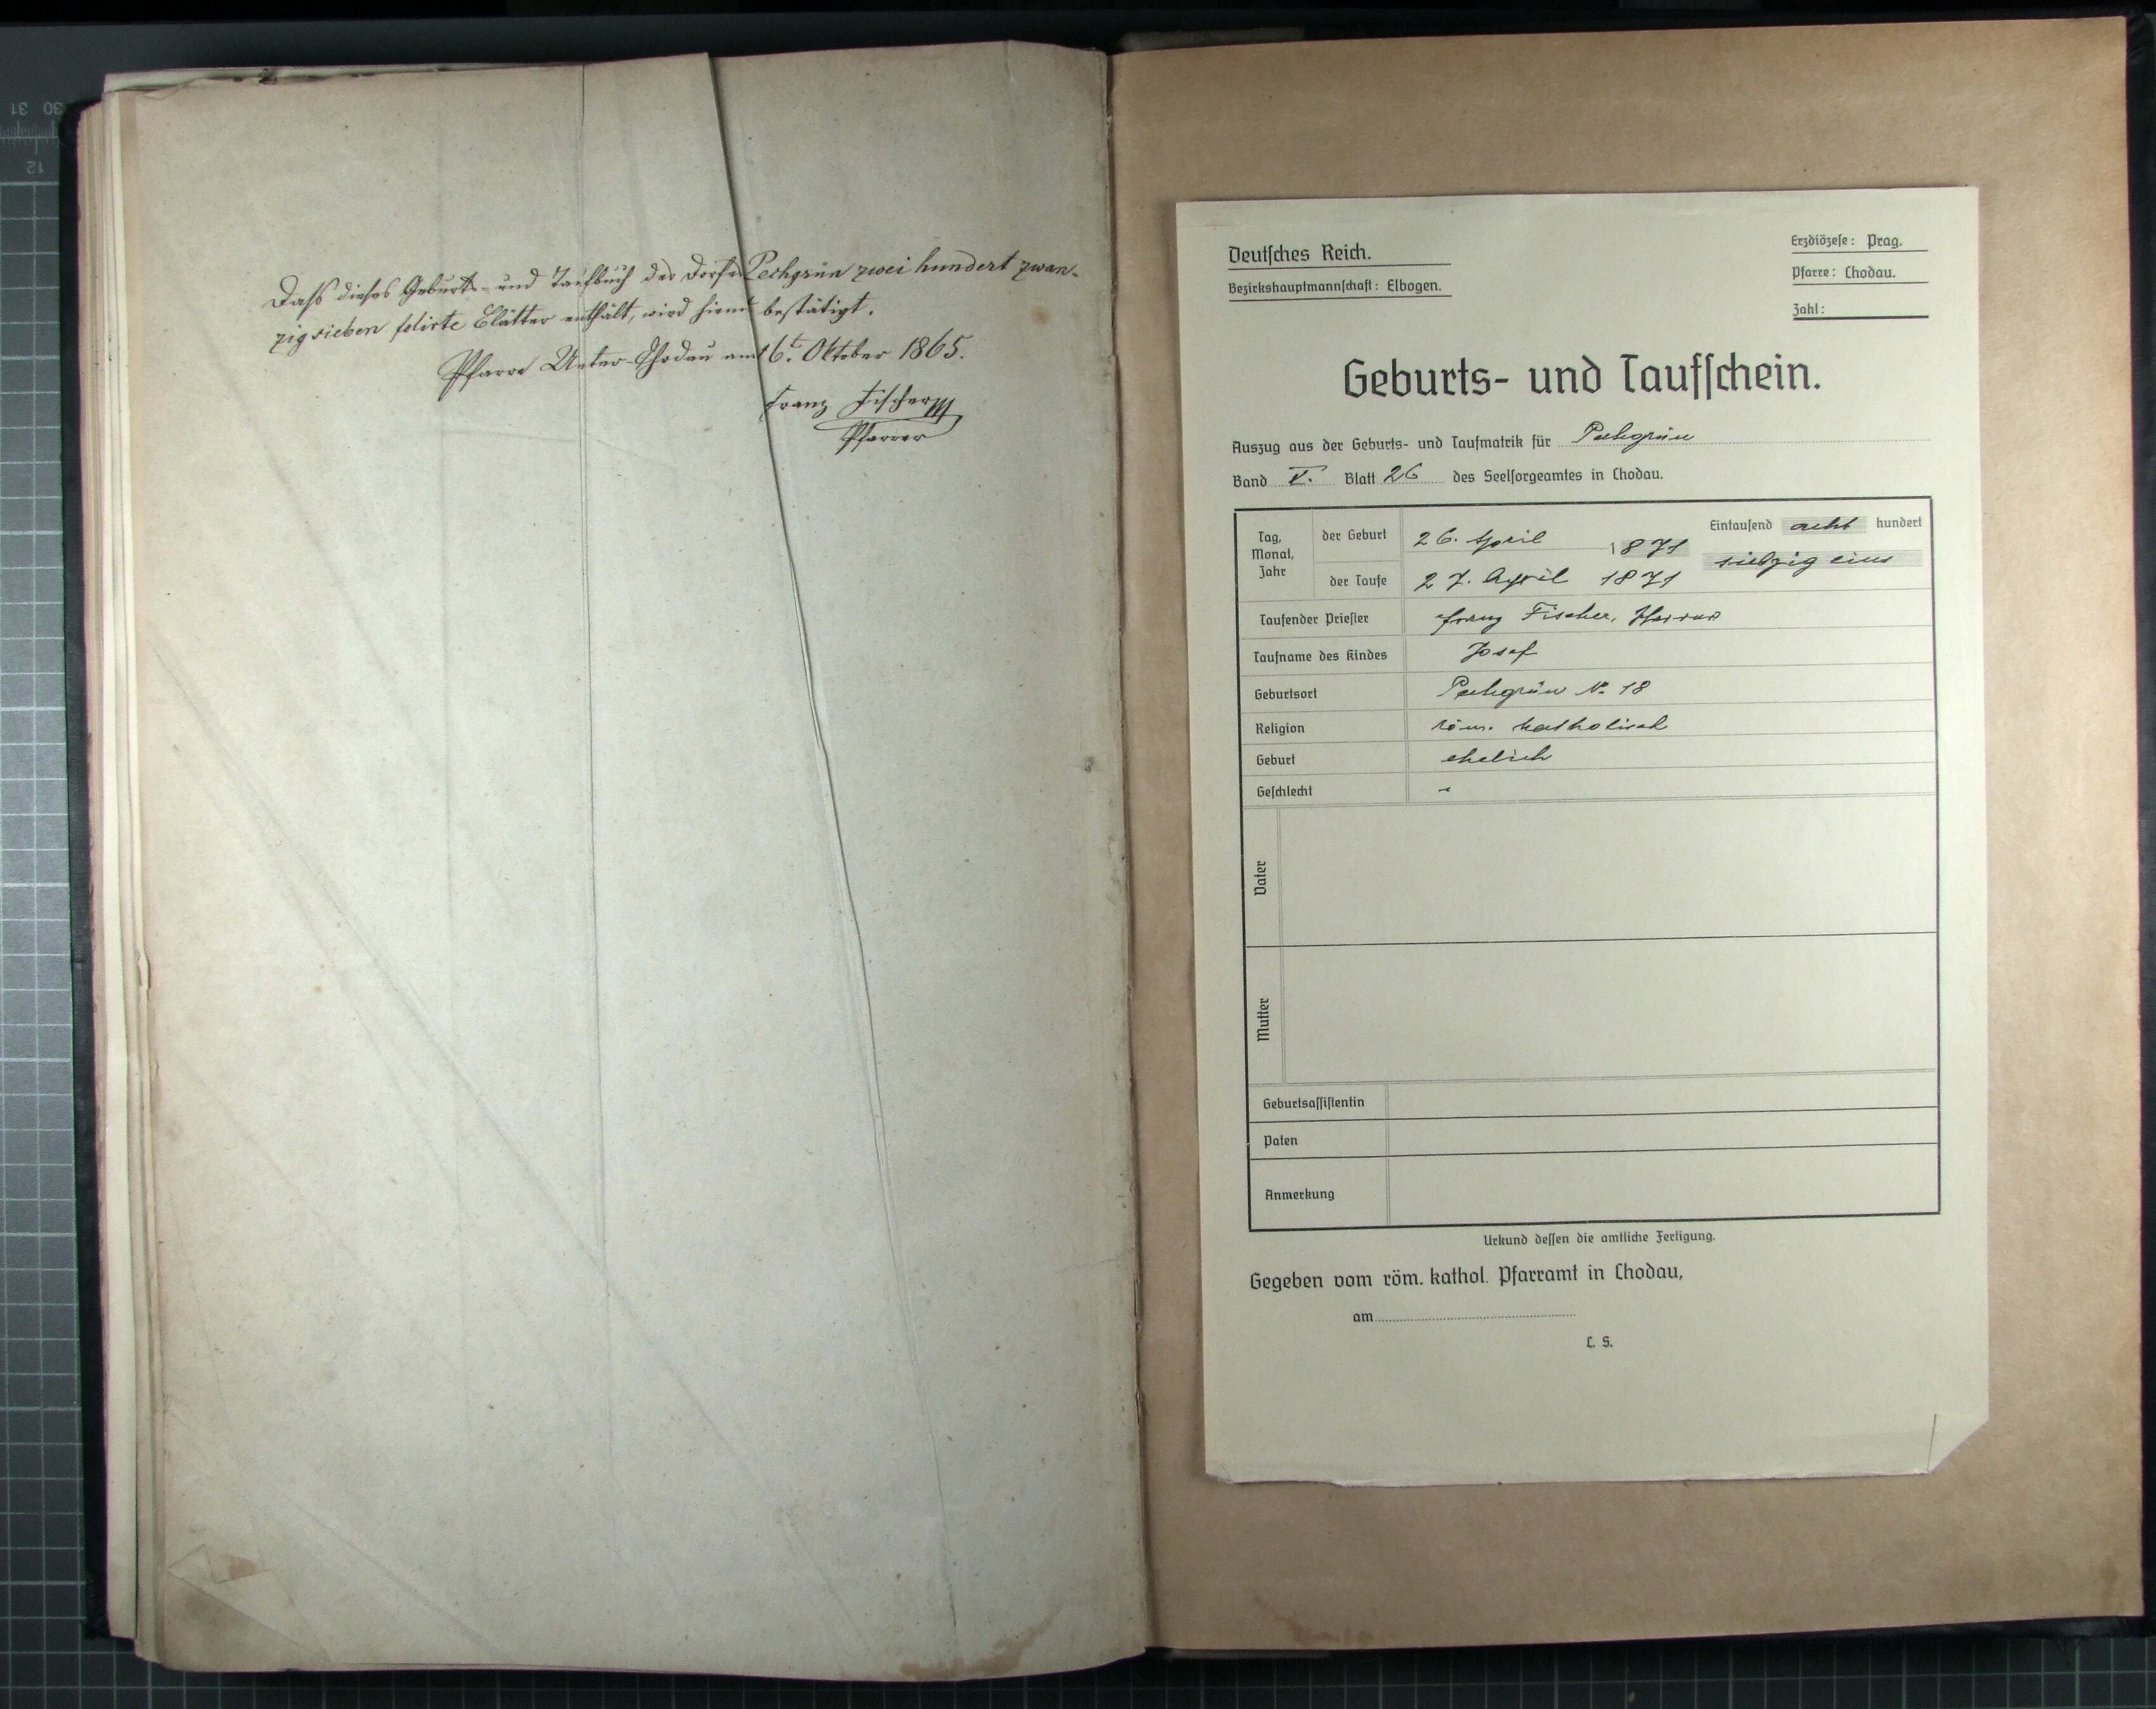 Daß dieses Geburts- und Taufbuch des Dorfes Pechgrün zwei hundert zwan-
zig sieben folirte Blätter enthält, wird hiemit bestätigt.
Pfarre Unter-Chodau am 6t. Oktober 1865.
Franz Fischer
Pfarrer
Deutsches Reich.
Bezirkshauptmannschaft: Elbogen.
Erzdiözese: Prag.
Pfarre: Chodau.
Zahl:
Geburts- und Taufschein.
Auszug aus der Geburts- und Taufmatrik für Pechgrün
Band V. Blatt 26 des Seelsorgeamtes in Chodau.
Tag, Monat, Jahr
der Geburt 26. April 1871
Eintausend acht hundert
siebzig eins
der Taufe 27. April 1871
Taufender Priester Franz Fischer, Pfarrer
Taufname des Kindes Josef
Geburtsort Pechgrün N. 18
Religion röm. katholisch
Geburt ehelich
Geschlecht
Vater
Mutter
Geburtsassistentin
Paten
Anmerkung
Urkund dessen die amtliche Fertigung.
Gegeben vom röm. kathol. Pfarramt in Chodau,
am
L. S.
30 31
12